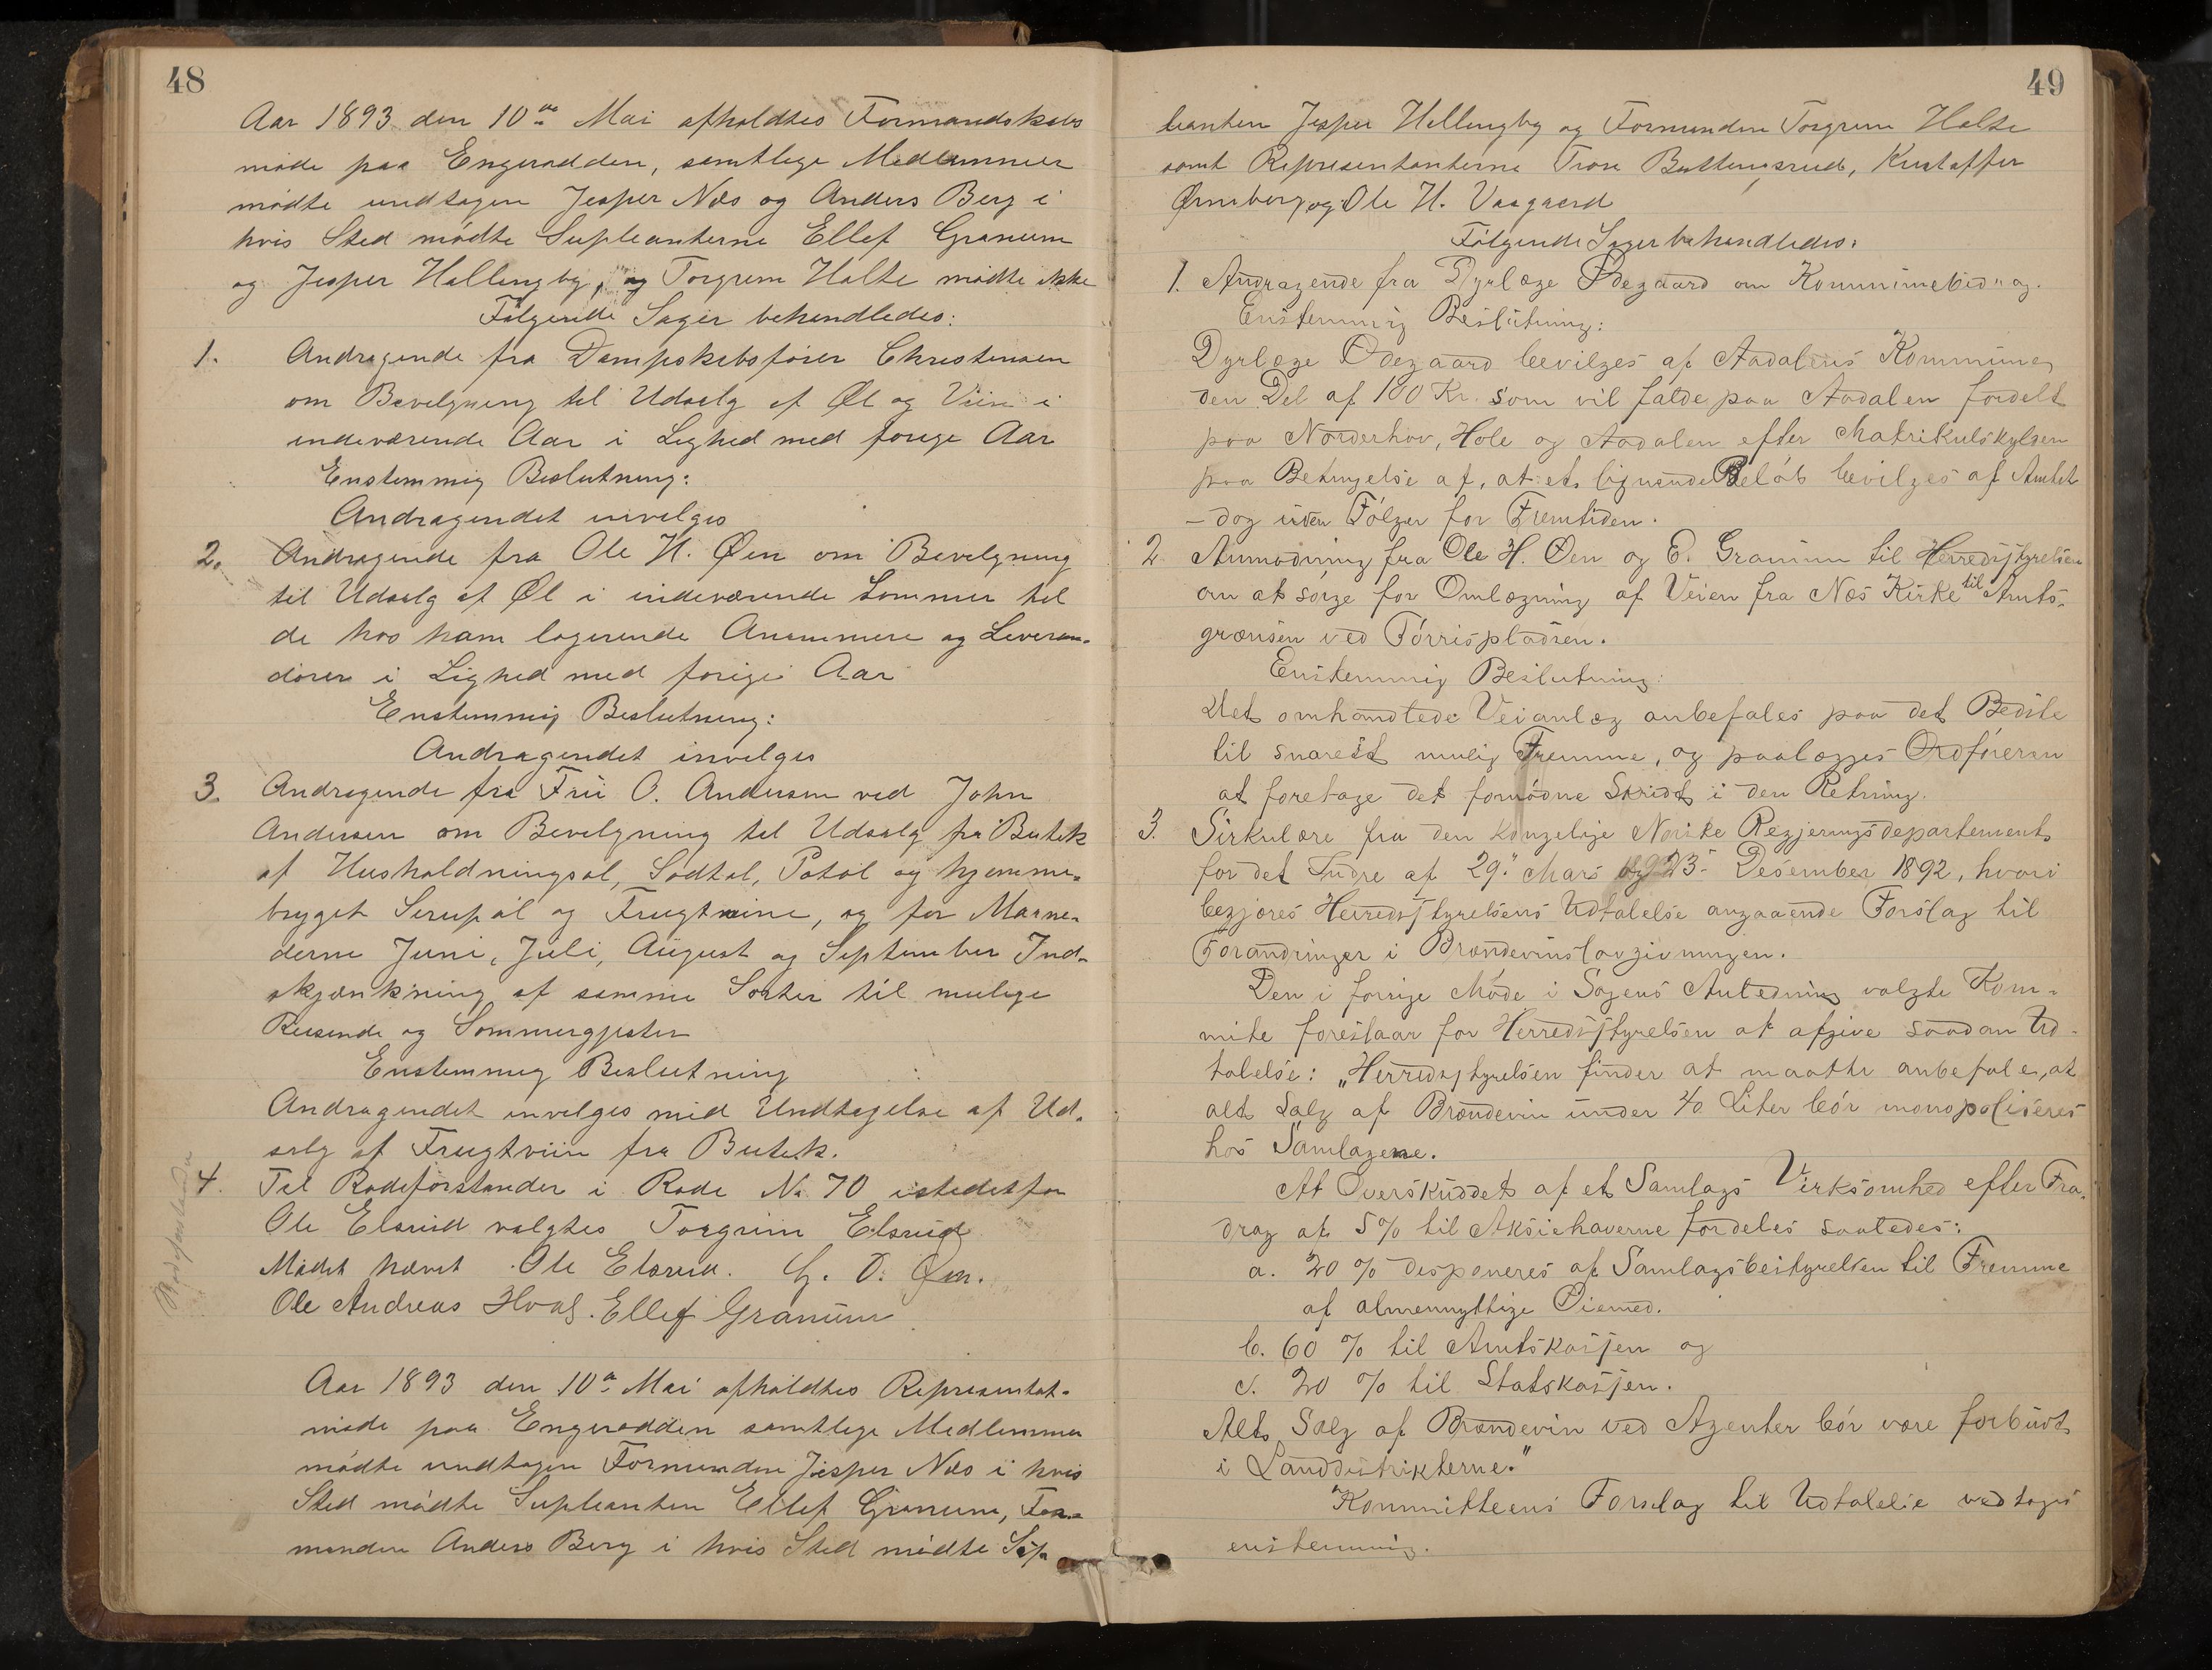 48
Aar 1893 den 10de Mai afholdtes Formandskabs
møde paa Engerodden, samtlige Medlemmer
mødte undtagen Jesper Næs og Anders Berg i
hvis Sted mødte Supleanterne Ellef Granum
og Jesper Hallingby, og Torgrim Holte mødte ikke
Følgende Sager behandledes:
1. Andragende fra Dampskibsfører Christensen
om Bevilgning til Udsalg af Øl og Viin i
indeværende Aar i Lighed med forige Aar
Enstemmig Beslutning:
Andragendet invilges
2. Andragende fra Ole H. Øen om Bevilgning
til Udsalg af Øl i indeværende Sommer til
de hos ham logerende Annammere og Leveran-
dører i Lighed med forige Aar
Enstemmig Beslutning:
Andragendet invilges
3. Andragende fra Frú O. Andersen ved John
Andersen om Bevilgning til Udsalg fra Butik
af Husholdningsøl, Sødtøl, Potøl og hjemme-
brygget Serupøl og Frugtvine, og for Maane-
derne Juni, Juli, August og September Ind-
skjænkning af samme Sorter til mulige
Reisende og Sommergjester
Enstemmig Beslutning
Andragendet invilges med Undtagelse af Ud-
salg af Frugtviin fra Butik.
4. Til Rodeforstander i Rode No 70 istedetfor
Ole Elsrud valgtes Torgrim Elsrud
Mødet hævet Ole Elsrud. G. O. Øen.
Ole Andreas Hval. Ellef Granum
Rodeforstander
Aar 1893 den 10de Mai afholdtes Representat-
møde paa Engerodden samtlige Medlemmer
mødte undtagen Formanden Jesper Næs i hvis
Sted mødte Supleanten Ellef Granum, For-
manden Anders Berg i hvis Sted mødte Sup
49
leanten Jesper Hallingby og Formanden Torgrim Holte
samt Representanterne Tron Buttingsrud, Kristoffer
Ørneberg og Ole H. Vaagaard
Følgende Sager behandledes:
1. Andragende fra Dyrlæge Ødegaard om Kommunebidrag.
Enstemmig Beslutning:
Dyrlæge Ødegaard bevilges af Aadalens Kommune
den Del af 100 Kr. som vil falde paa Aadalen fordelt
paa Norderhov, Hole og Aadalen efter Matrikulskylden
paa Betingelse af, at et lignende Beløb bevilges af Amtet
– dog uden Følger for Fremtiden.
2. Anmodning fra Ole H. Øen og E. Granum til Herredsstyrelsen
om at sørge for Omlægning af Veien fra Næs Kirke til Amts-
grænsen ved Tørrispladsen.
Enstemmig Beslutning:
Det omhandlede Veianlæg anbefales paa det Bedste
til snarest mulig Fremme, og paalægges Ordføreren
at foretage det fornødne Skridt i den Retning.
3. Sirkulære fra den kongelige Norske Regjeringsdepartement
for det Indre af 29. Mars og 23. Desember 1892, hvori
begjæres Herredsstyrelsens Udtalelse angaaende Forslag til
Forandringer i Brændevinslovgivningen.
Den i forrige Møde i Sagens Anledning valgte Kom-
mite foreslaar for Herredsstyrelsen at afgive saadan Ud-
talelse: „Herredsstyrelsen finder at maatte anbefale, at
alt Salg af Brændevin under 40 Liter bør monopoliseres
hos Samlagene.
At Overskuddet af et Samlags Virksomhed efter Fra-
drag af 5% til Aksiehaverne fordeles saaledes:
a. 20 % disponeres af Samlagsbestyrelsen til Fremme
af almennyttige Øiemed.
b. 60 % til Amtskassen og
c. 20 % til Statskassen.
Alt Salg af Brændevin ved Agenter bør være forbudt
i Landdistrikterne."
Kommitteens Forslag til Udtalelse vedtoges
enstemmig.